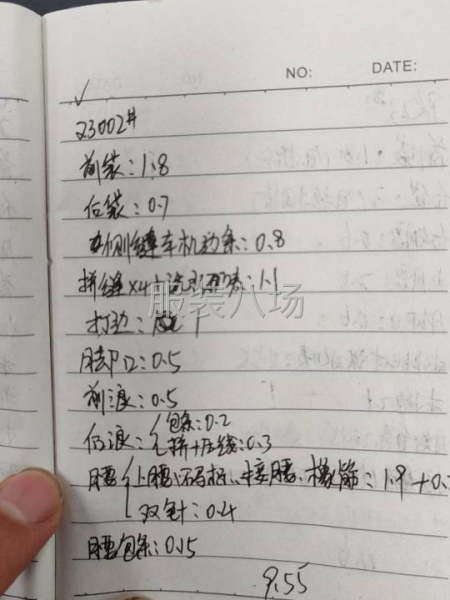 NO: DATE:
✓
23002#
前袋:1.8
后袋:0.7
侧缝车机边条:0.8
拼缝x4+:1.1
服装八场
打边:1
脚口:0.5
前浪:0.5
后浪: 包条:0.2
拼+压线:0.3
腰 上腰、接腰、橡筋:1.9+0.
双针:0.4
腰包条:0.15
9.55